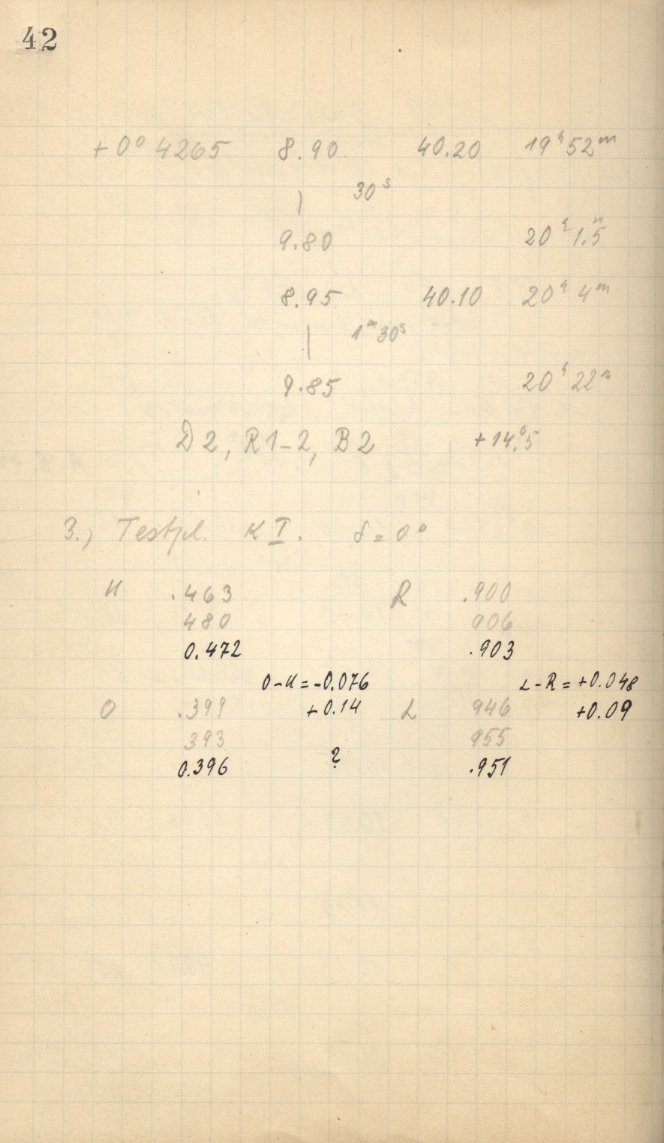 42
+0° 4265 8.90 40.20 19ʰ52ᵐ
| 30ˢ
9.80 20ʰ1.5ᵐ
8.95 40.10 20ʰ4ᵐ
| 1ᵐ30ˢ
9.85 20ʰ22ᵐ
D2, R1-2, B2 +14,°5
3.) Testpl. K I. δ=0°
U .463 R .900
480 906
0.472 .903
O-U=-0.076 L-R=+0.048
O .399 +0.14 L 946 +0.09
393 955
0.396 ? .951